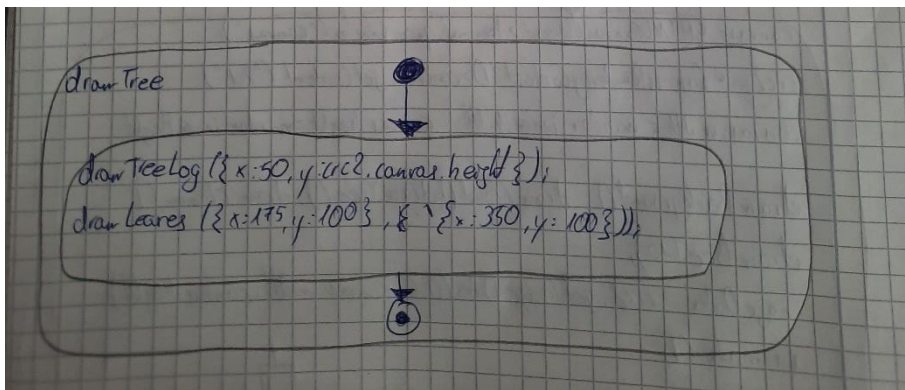 drawTree
drawTreeLog({x:50, y:crc2.canvas.height});
drawLeaves ({x:175, y:100}, {x:350, y:100});